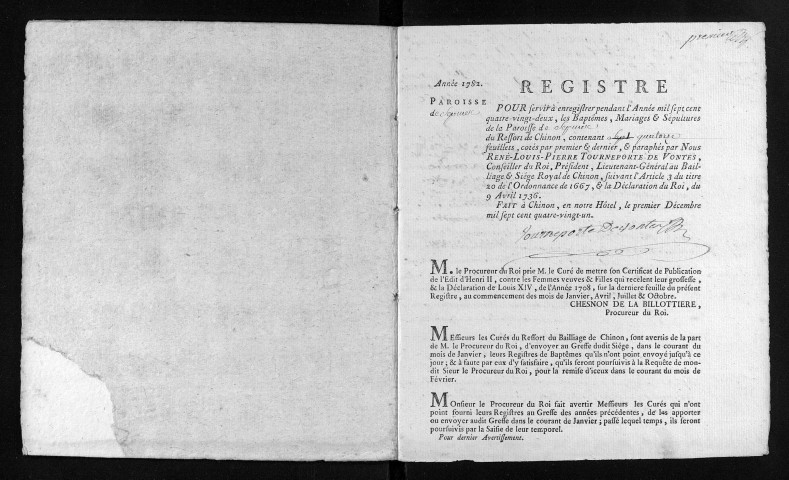 premier
Année 1782.
REGISTRE
PAROISSE
de
POUR servir à enregistrer pendant l'Année mil sept cent
quatre-vingt-deux, les Baptêmes, Mariages & Sépultures
de la Paroisse de
du Ressort de Chinon, contenant quatorze
feuillets, cotés par premier & dernier, & paraphés par Nous
RENÉ-LOUIS-PIERRE TOURNEPORTE DE VONTES,
Conseiller du Roi, Président, Lieutenant-Général au Bail-
liage & Siége Royal de Chinon, suivant l'Article 3 du titre
20 de l'Ordonnance de 1667, & la Déclaration du Roi, du
9 Avril 1736.
FAIT à Chinon, en notre Hôtel, le premier Décembre
mil sept cent quatre-vingt-un.
Tourneporte Devontes
M. le Procureur du Roi prie M. le Curé de mettre son Certificat de Publication
de l'Edit d'Henri II, contre les Femmes veuves & Filles qui recelent leur grossesse,
& la Déclaration de Louis XIV, de l'Année 1708, sur la derniere feuille du présent
Registre, au commencement des mois de Janvier, Avril, Juillet & Octobre.
CHESNON DE LA BILLOTTIERE,
Procureur du Roi.
MESSIEURS les Curés du Ressort du Bailliage de Chinon, sont avertis de la part
de M. le Procureur du Roi, d'envoyer au Greffe dudit Siége, dans le courant du
mois de Janvier, leurs Registres de Baptêmes qu'ils n'ont point envoyé jusqu'à ce
jour; & à faute par eux d'y satisfaire, qu'ils seront poursuivis à la Requête de mon-
dit Sieur le Procureur du Roi, pour la remise d'iceux dans le courant du mois de
Février.
MONSIEUR le Procureur du Roi fait avertir Messieurs les Curés qui n'ont
point fourni leurs Registres au Greffe des années précédentes, de les apporter
ou envoyer audit Greffe dans le courant de Janvier; passé lequel temps, ils seront
poursuivis par la Saisie de leur temporel.
Pour dernier Avertissement.